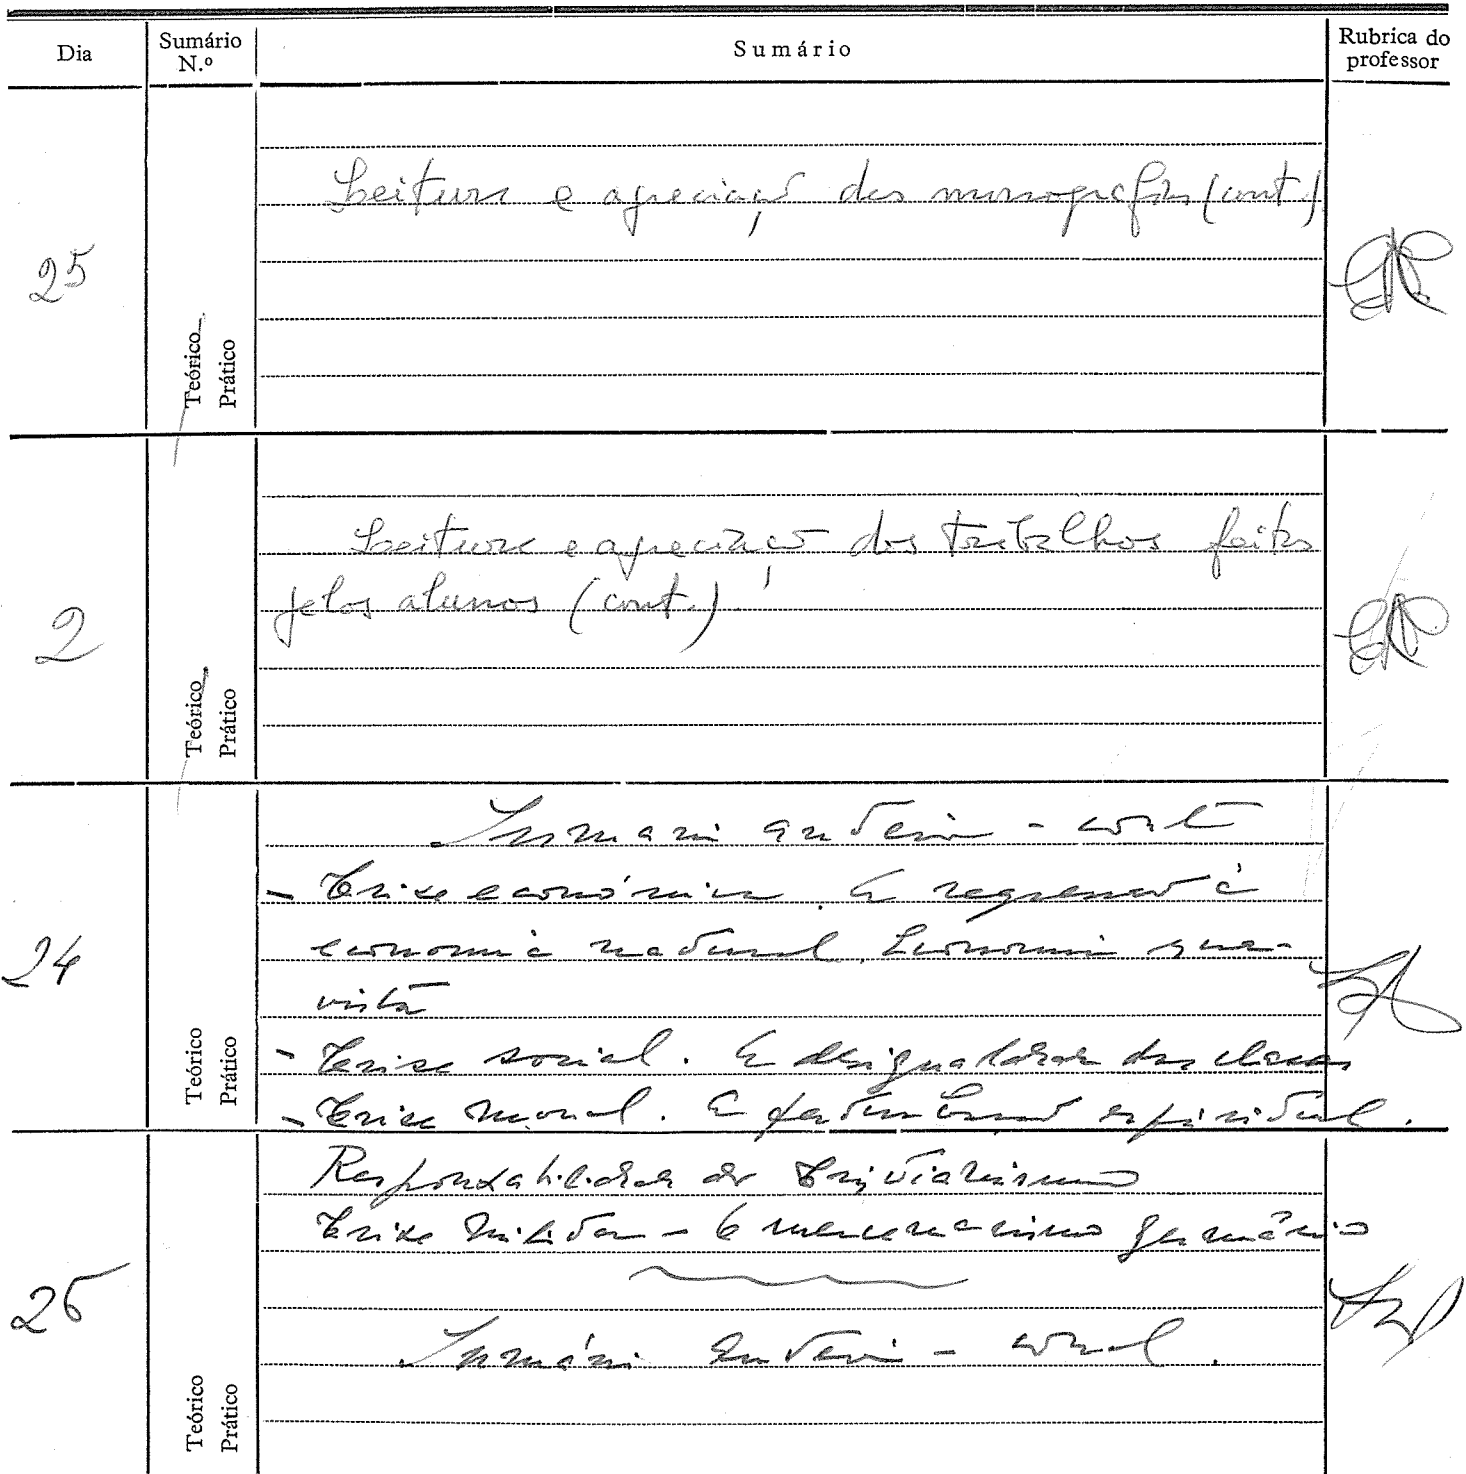 Dia
Sumário N.º
Sumário
Rubrica do professor
25
Teórico
Prático
Leitura e apreciação das monografias (cont.)
2
Teórico
Prático
Leitura e apreciação dos trabalhos feitos
pelos alunos (cont.)
24
Teórico
Prático
Sumário anterior - cont
- Crise económica. O regresso à
economia natural. Economia
- Crise social. A desigualdade das classes
- Crise moral. espiritual.
25
Teórico
Prático
Responsabilidade do Cristianismo
Crise militar - O mercenarismo germânico
Sumário anterior - concl.